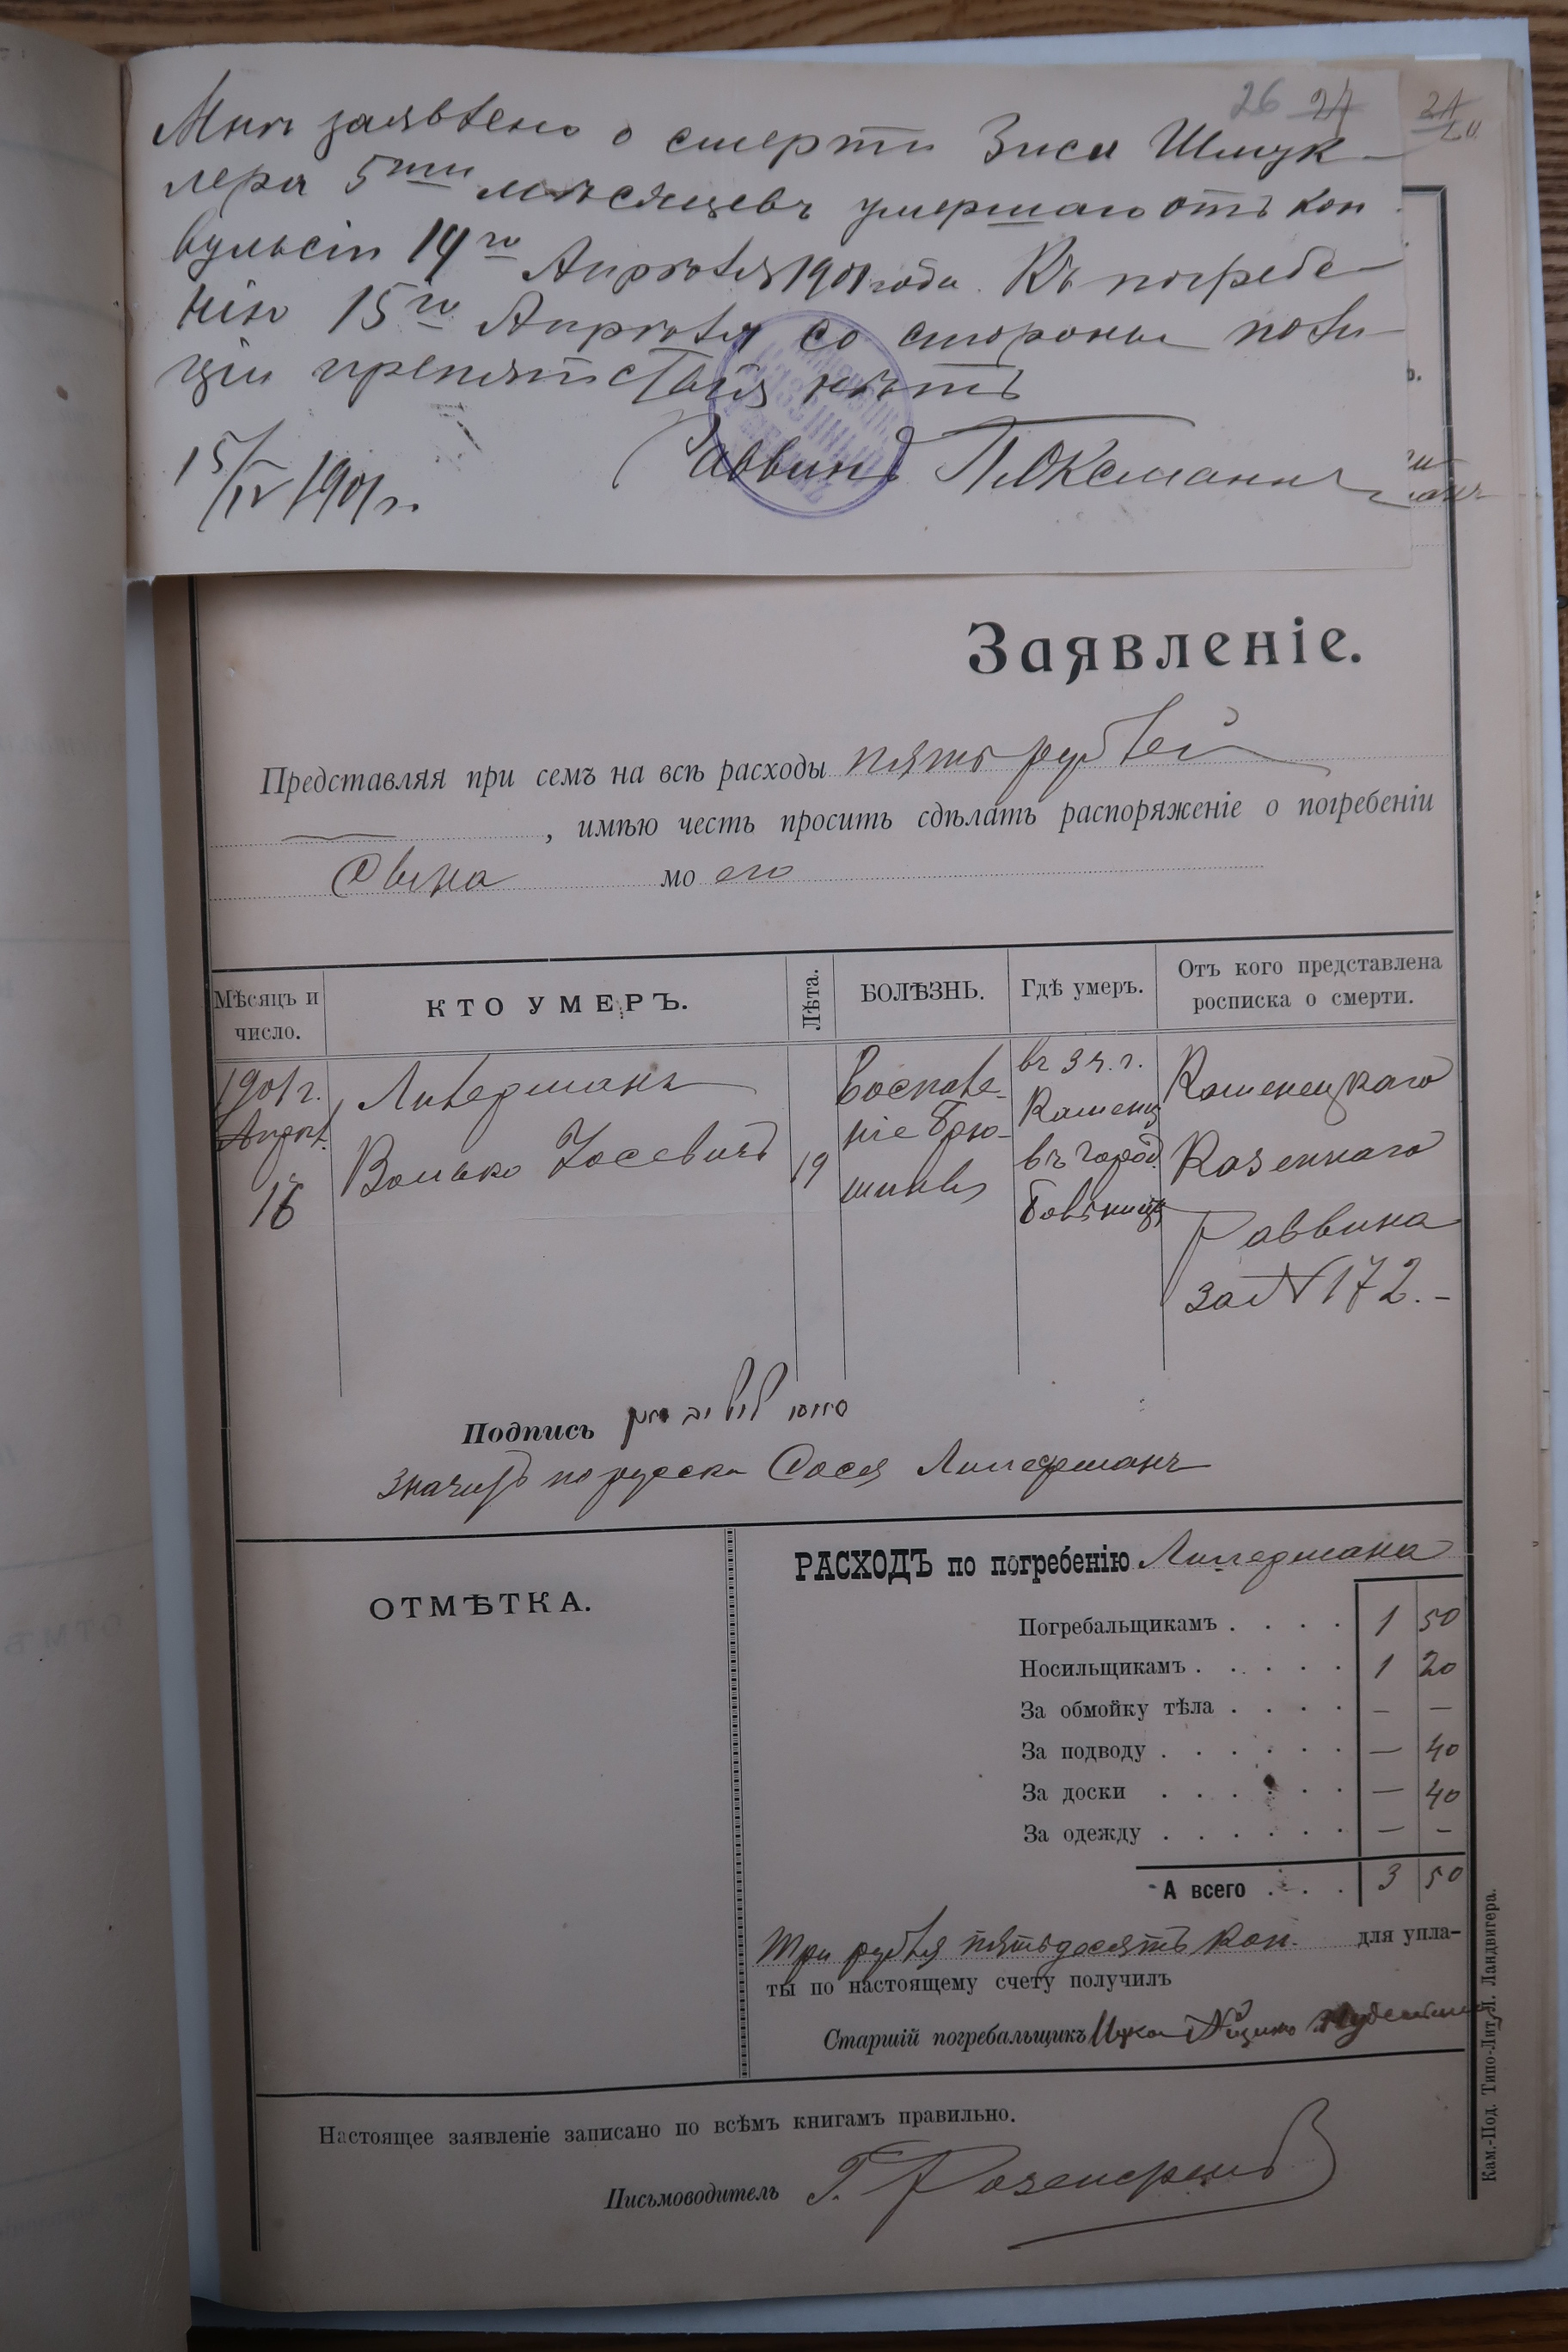 26 24
Мнѣ заявлено о смерти Зися Шмук-
лера 5ти мѣсяцевъ умершаго отъ кон
вульсіи 14го Апрѣля 1901 года. Къ погребе-
нію 15го Апрѣля со стороны поли-
ціи препятствія нѣтъ
15/IV 1901 г.
Раввинъ
Заявленіе.
Представляя при семъ на всѣ расходы пять рублей
, имѣю честь просить сдѣлать распоряженіе о погребеніи
Сына моего
Мѣсяцъ и число.
КТО УМЕРЪ.
Лѣта.
БОЛѢЗНЬ.
Гдѣ умеръ.
Отъ кого представлена росписка о смерти.
1901 г.
Апрѣл.
16
Липерманъ
Волько Іосевичъ
19
Воспале-
ніе брю-
шины
въ г.
Каменц
въ город.
больницѣ
Каменецкаго
Казеннаго
Раввина
за № 172.-
Подпись
значитъ по русски Сося Липерманъ
ОТМѢТКА.
РАСХОДЪ по погребенію Липермана
Погребальщикамъ . . . . 1 50
Носильщикамъ . . . . . 1 20
За обмойку тѣла . . . . – –
За подводу . . . . . . — 40
За доски . . . . . . — 40
За одежду . . . . . . — –
А всего . . . . 3 50
Три рубля пятьдесятъ коп. для упла-
ты по настоящему счету получилъ
Старшій погребальщикъ Ицко
Настоящее заявленіе записано по всѣмъ книгамъ правильно.
Письмоводитель Г.
Кам.-Под. Типо-Лит. Л. Ландвигера.